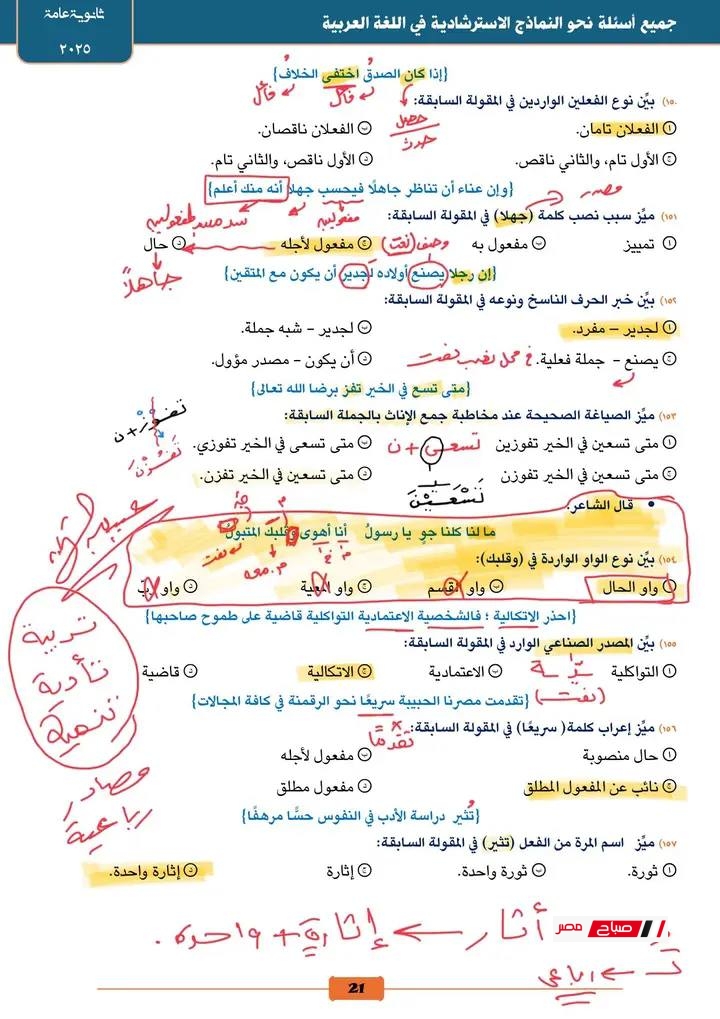 ثانوية عامة
٢٠٢٥
جميع أسئلة نحو النماذج الاسترشادية في اللغة العربية
{إذا كان الصدقُ اختفى الخلافُ}
فاعل فاعل
(١٥٠ بيّن نوع الفعلين الواردين في المقولة السابقة:
حصل
حدث
أ الفعلان تامان. ب الفعلان ناقصان.
ج الأول تام، والثاني ناقص. د الأول ناقص، والثاني تام.
{وإن عناء أن تناظر جاهلًا فيحسب جهلا أنه منك أعلم}
مصدر
(١٥١ ميّز سبب نصب كلمة (جهلا) في المقولة السابقة:
أ تمييز ب مفعول به ج مفعول لأجله د حال
وصف (نعت)
جاهلًا
{إن رجلا يصنع أولاده لجدير أن يكون مع المتقين}
(١٥٢ بيّن خبر الحرف الناسخ ونوعه في المقولة السابقة:
أ لجدير – مفرد. ب لجدير – شبه جملة.
ج يصنع – جملة فعلية. د أن يكون – مصدر مؤول.
في محل نصب نعت
{متى تسع في الخير تفز برضا الله تعالى}
(١٥٣ ميّز الصياغة الصحيحة عند مخاطبة جمع الإناث بالجملة السابقة:
تفوز + ن
تَفُزْنَ
أ متى تسعين في الخير تفوزين ب متى تسعى في الخير تفوزي.
تسعى + ن
ج متى تسعين في الخير تفوزن د متى تسعين في الخير تفزن.
تَسْعَيْنَ
• قال الشاعر:
ما لنا كلنا جو يا رسولُ أنا أهوى وقلبك المتبولُ
(١٥٤ بيّن نوع الواو الواردة في (وقلبك):
أ واو الحال ب واو القسم ج واو المعية د واو رب
{احذر الاتكالية ؛ فالشخصية الاعتمادية التواكلية قاضية على طموح صاحبها}
(١٥٥ بيّن المصدر الصناعي الوارد في المقولة السابقة:
أ التواكلية ب الاعتمادية ج الاتكالية د قاضية
(نعت)
{تقدمت مصرنا الحبيبة سريعًا نحو الرقمنة في كافة المجالات}
(١٥٦ ميّز إعراب كلمة( سريعًا) في المقولة السابقة:
تقدمًا
أ حال منصوبة ب مفعول لأجله
ج نائب عن المفعول المطلق د مفعول مطلق
تربية
تأدية
تنمية
مصادر
رباعية
{تُثير دراسة الأدب في النفوس حسًّا مرهفًا}
(١٥٧ ميّز اسم المرة من الفعل (تثير) في المقولة السابقة:
أ ثورة. ب ثورة واحدة. ج إثارة د إثارة واحدة.
أثار ← إثارة + واحدة.
صباح مصر
رباعي
21